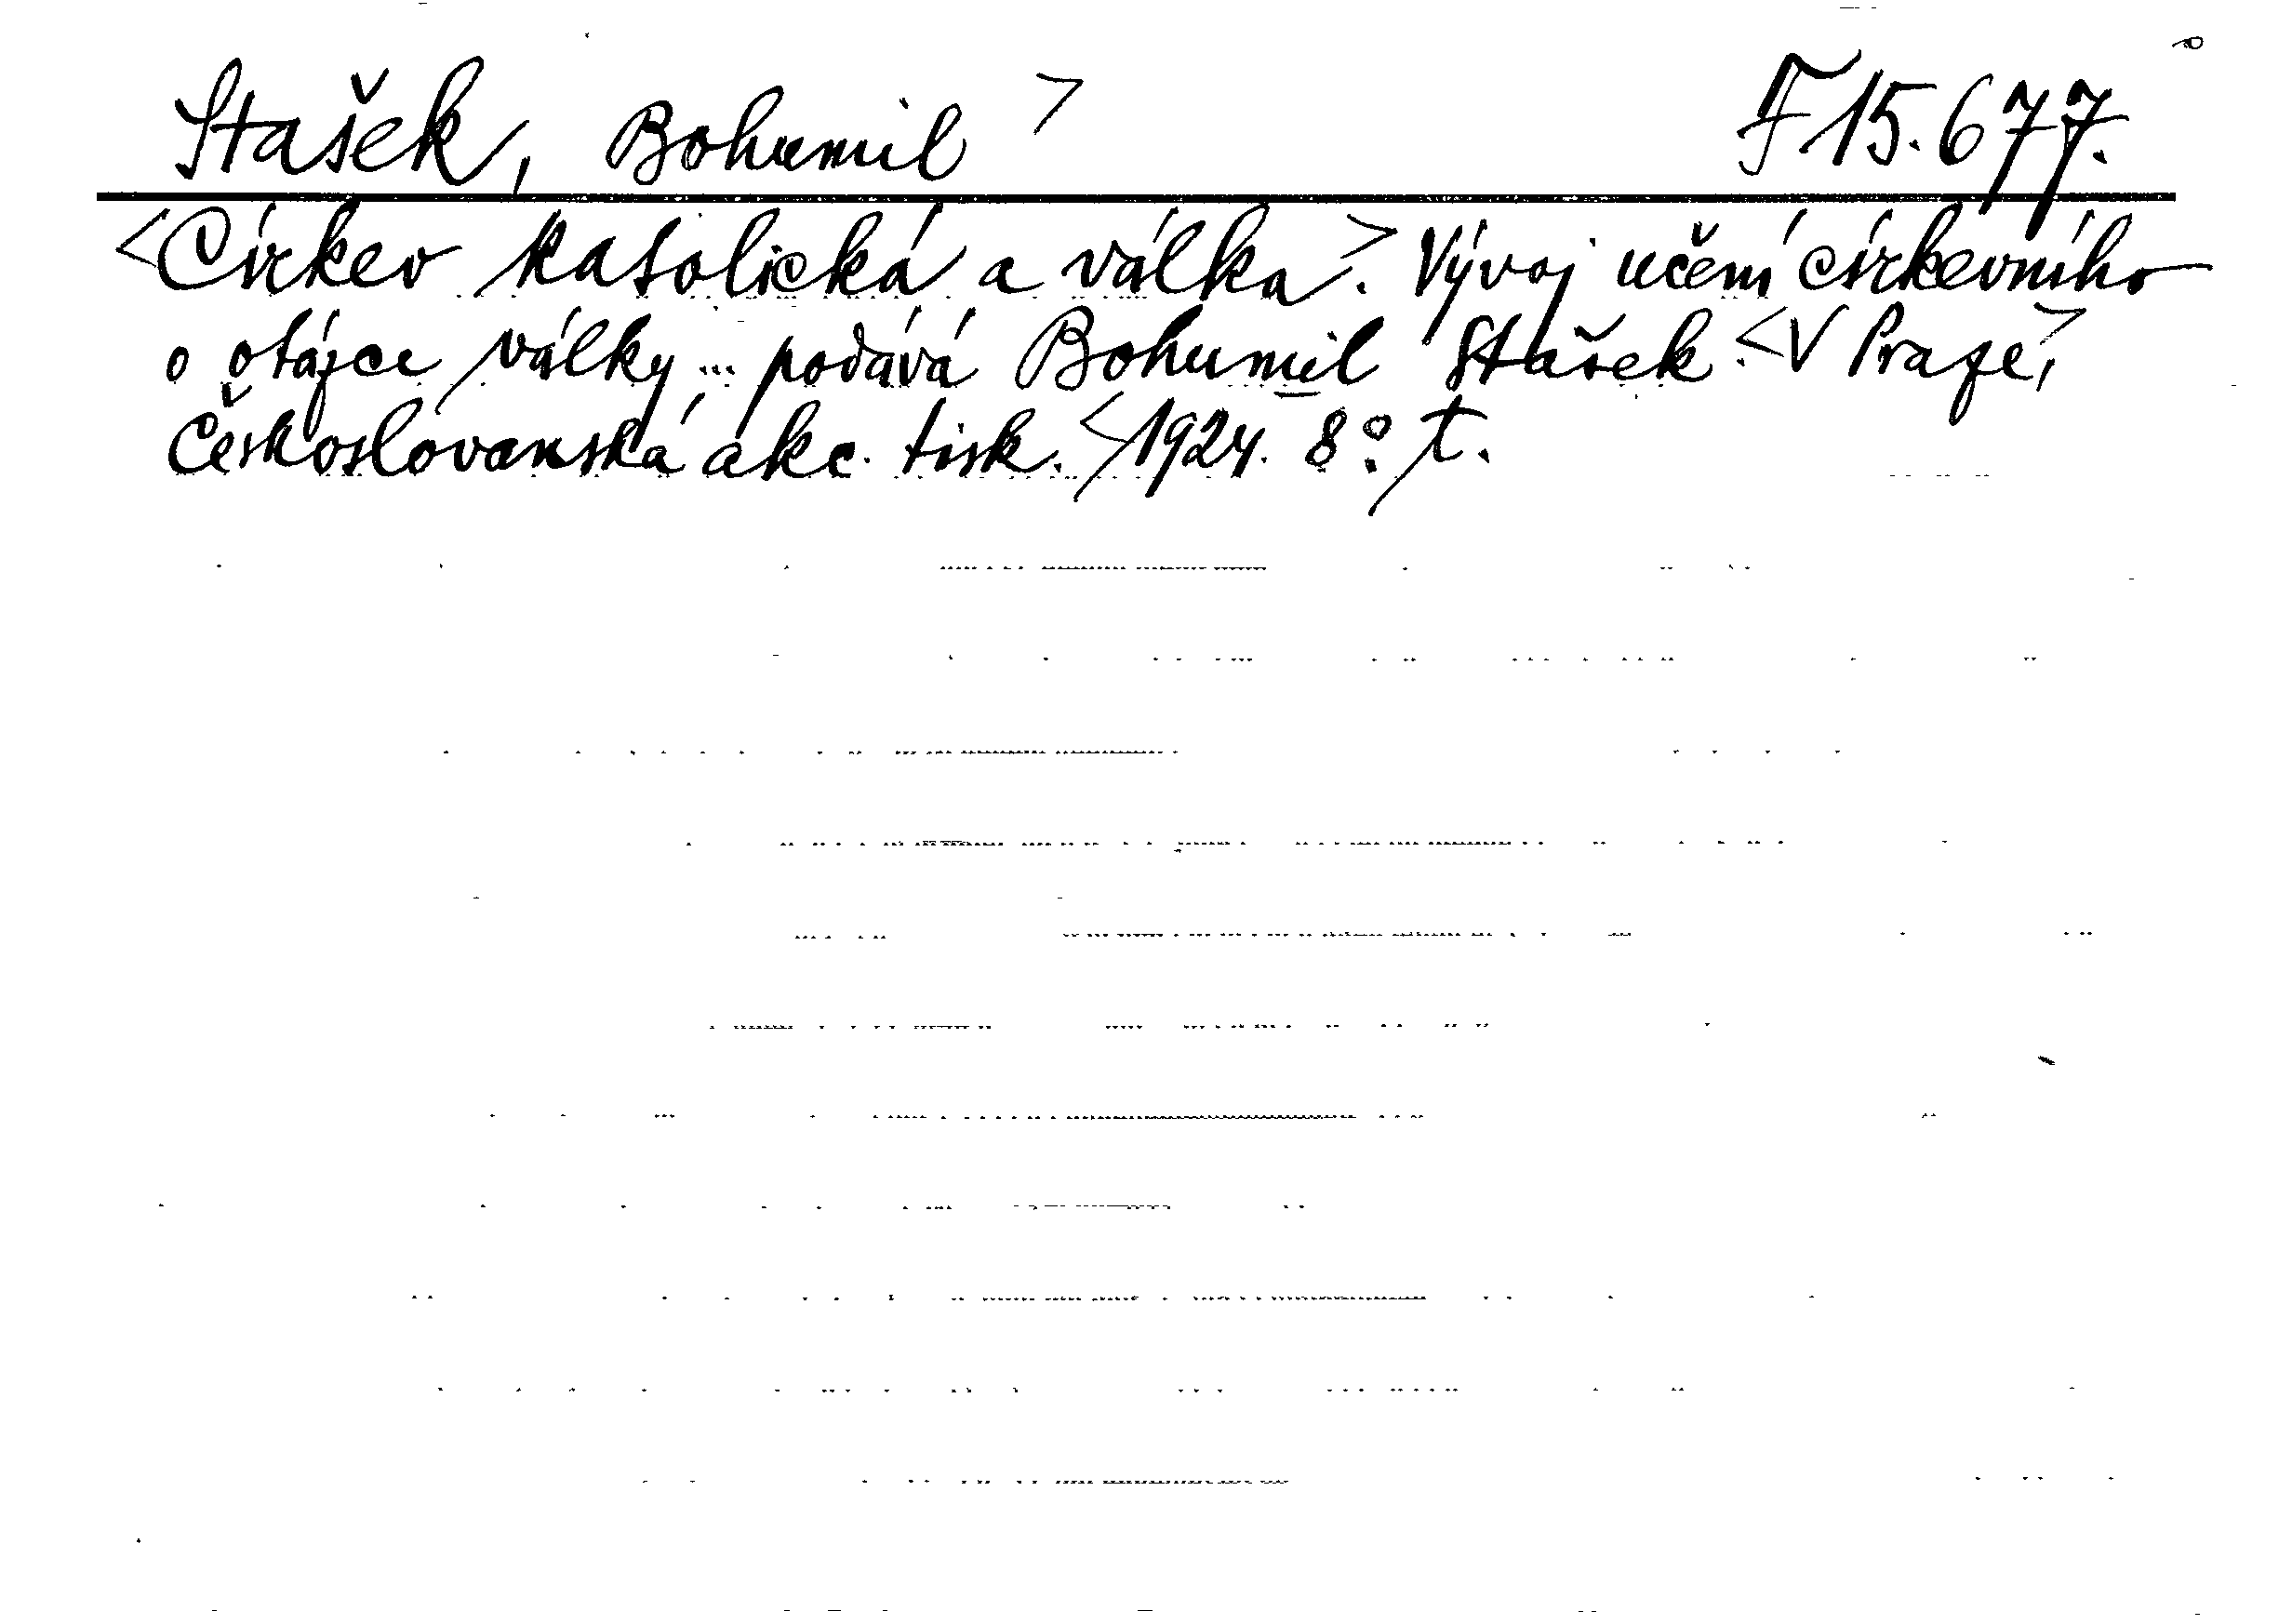 Stašek, Bohumil > F 15.677.
<Církev katolická a válka>. Vývoj učení církevního
o otázce války ... podává Bohumil Stašek. <V Praze,>
Českoslovanská akc. tisk. <1924. 8°. t.